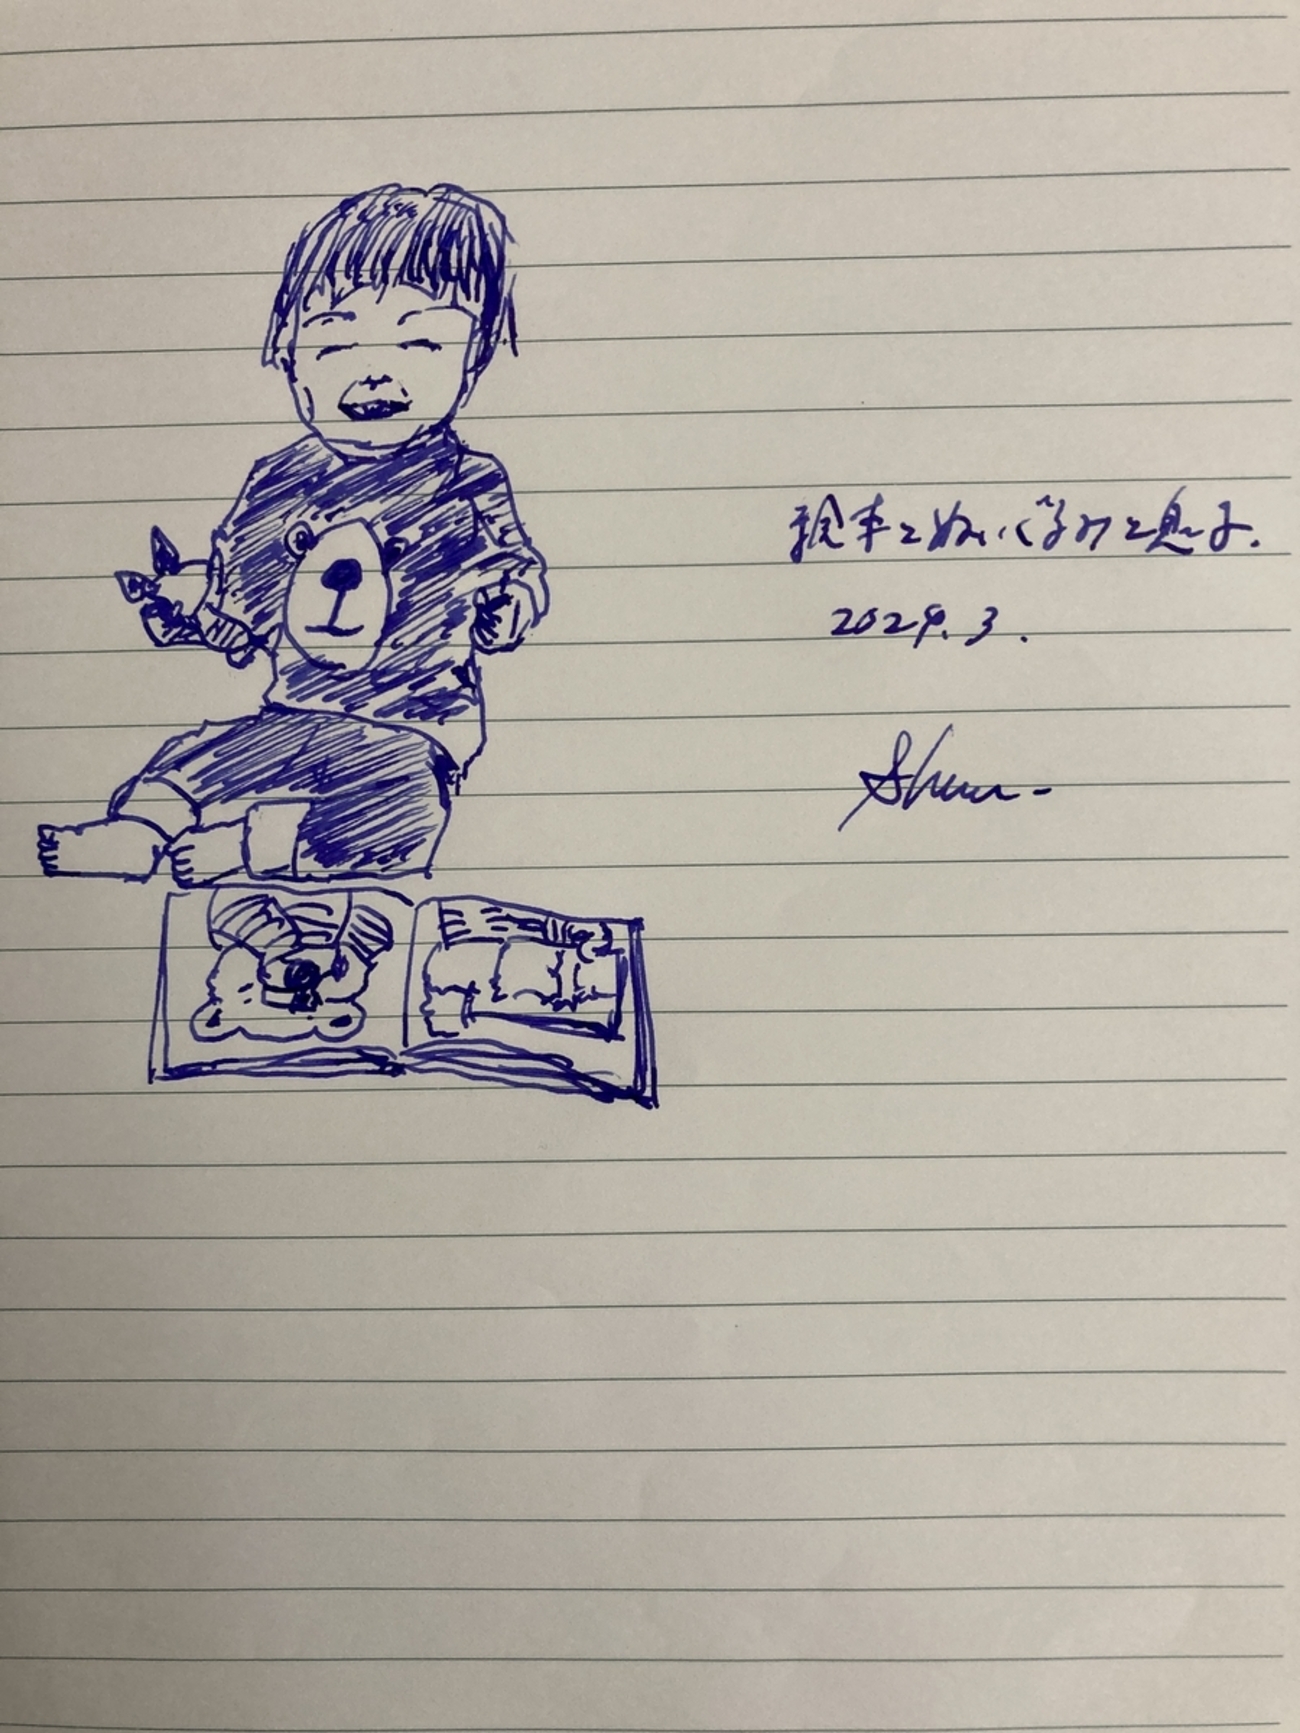 絵本とぬいぐるみと息子.
2024.3.
Shun-